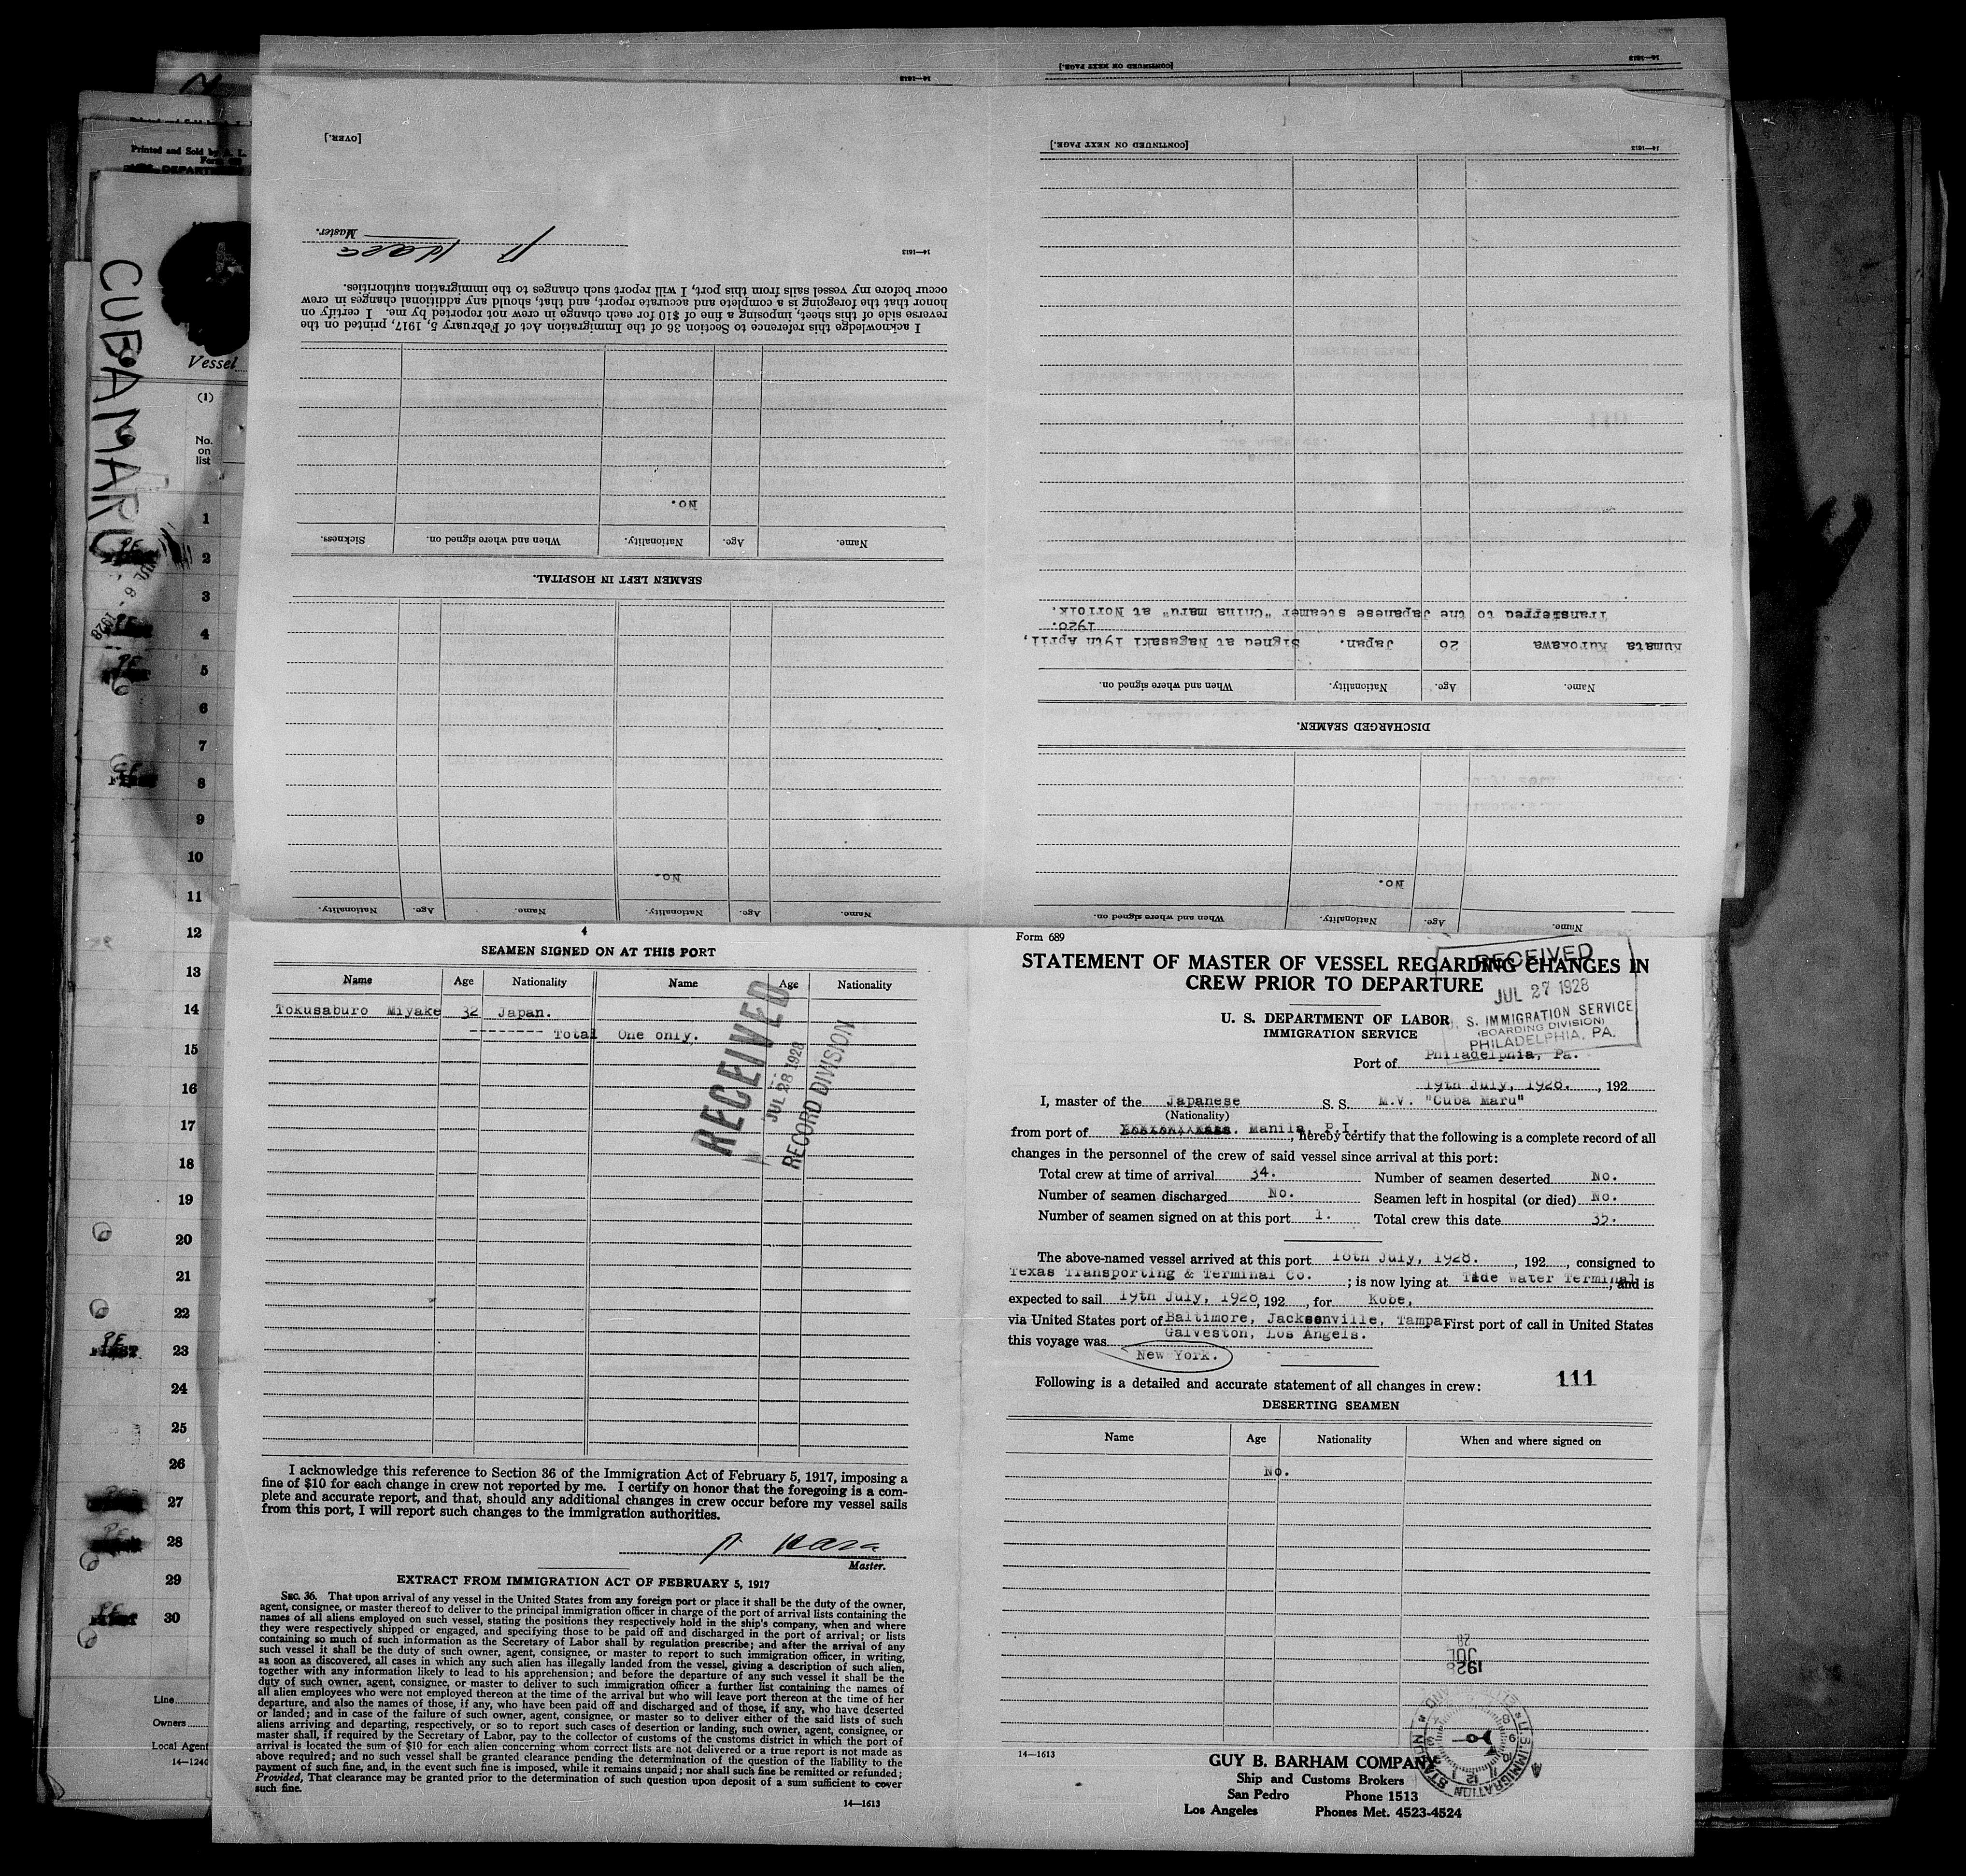 [CONTINUED ON NEXT PAGE.]
14—1613
14—1613
[OVER.]
Master.
14—1613
I acknowledge this reference to Section 36 of the Immigration Act of February 5, 1917, printed on the
reverse side of this sheet, imposing a fine of $10 for each change in crew not reported by me. I certify on
honor that the foregoing is a complete and accurate report, and that, should any additional changes in crew
occur before my vessel sails from this port, I will report such changes to the immigration authorities.
No.
Name. Age. Nationality. When and where signed on. Sickness.
SEAMEN LEFT IN HOSPITAL.
No.
Name. Age. Nationality. Name. Age. Nationality.
[CONTINUED ON NEXT PAGE.]
14—1613
Transferred to the Japanese steamer "China maru" at Norfolk.
Kumata Kurokawa 26 Japan. Signed at Nagasaki 19th April,
1928.
Name. Age. Nationality. When and where signed on.
DISCHARGED SEAMEN.
No.
Name. Age. Nationality. When and where signed on.
Printed and Sold by
CUBA MARU
Vessel
(1)
No.
on
list
1
2
3
4
5
6
7
8
9
10
11
12
13
14
15
16
17
18
19
20
21
22
23
24
25
26
27
28
29
30
JUL 6 - 1928
Line
Owners
Local Agent
14—1240
4
SEAMEN SIGNED ON AT THIS PORT
Name Age Nationality Name Age Nationality
Tokusaburo Miyake 32 Japan.
Total One only.
RECEIVED
JUL 28 1928
RECORD DIVISION
I acknowledge this reference to Section 36 of the Immigration Act of February 5, 1917, imposing a
fine of $10 for each change in crew not reported by me. I certify on honor that the foregoing is a com-
plete and accurate report, and that, should any additional changes in crew occur before my vessel sails
from this port, I will report such changes to the immigration authorities.
Master.
EXTRACT FROM IMMIGRATION ACT OF FEBRUARY 5, 1917
SEC. 36. That upon arrival of any vessel in the United States from any foreign port or place it shall be the duty of the owner,
agent, consignee, or master thereof to deliver to the principal immigration officer in charge of the port of arrival lists containing the
names of all aliens employed on such vessel, stating the positions they respectively hold in the ship's company, when and where
they were respectively shipped or engaged, and specifying those to be paid off and discharged in the port of arrival; or lists
containing so much of such information as the Secretary of Labor shall by regulation prescribe; and after the arrival of any
such vessel it shall be the duty of such owner, agent, consignee, or master to report to such immigration officer, in writing,
as soon as discovered, all cases in which any such alien has illegally landed from the vessel, giving a description of such alien,
together with any information likely to lead to his apprehension; and before the departure of any such vessel it shall be the
duty of such owner, agent, consignee, or master to deliver to such immigration officer a further list containing the names of
all alien employees who were not employed thereon at the time of the arrival but who will leave port thereon at the time of her
departure, and also the names of those, if any, who have been paid off and discharged and of those, if any, who have deserted
or landed; and in case of the failure of such owner, agent, consignee, or master so to deliver either of the said lists of such
aliens arriving and departing, respectively, or so to report such cases of desertion or landing, such owner, agent, consignee, or
master shall, if required by the Secretary of Labor, pay to the collector of customs of the customs district in which the port of
arrival is located the sum of $10 for each alien concerning whom correct lists are not delivered or a true report is not made as
above required; and no such vessel shall be granted clearance pending the determination of the question of the liability to the
payment of such fine, and, in the event such fine is imposed, while it remains unpaid; nor shall such fine be remitted or refunded;
Provided, That clearance may be granted prior to the determination of such question upon deposit of a sum sufficient to cover
such fine.
14—1613
Form 689
STATEMENT OF MASTER OF VESSEL REGARDING CHANGES IN
CREW PRIOR TO DEPARTURE
RECEIVED
JUL 27 1928
U. S. IMMIGRATION SERVICE
(BOARDING DIVISION)
PHILADELPHIA, PA.
U. S. DEPARTMENT OF LABOR
IMMIGRATION SERVICE
Port of Philadelphia, Pa.
19th July, 1928. , 192
I, master of the Japanese S. S. M.V. "Cuba Maru"
(Nationality)
from port of Manila, P.I. , hereby certify that the following is a complete record of all
changes in the personnel of the crew of said vessel since arrival at this port:
Total crew at time of arrival 34. Number of seamen deserted No.
Number of seamen discharged No. Seamen left in hospital (or died) No.
Number of seamen signed on at this port 1. Total crew this date 35.
The above-named vessel arrived at this port 18th July, 1928. , 192 , consigned to
Texas Transporting & Terminal Co. ; is now lying at Tide Water Terminal, and is
expected to sail 19th July, 1928, 192 , for Kobe,
via United States port of Baltimore, Jacksonville, Tampa First port of call in United States
Galveston, Los Angels.
this voyage was New York.
Following is a detailed and accurate statement of all changes in crew:
111
DESERTING SEAMEN
Name Age Nationality When and where signed on
No.
28
JUL
1928
U.S. IMMIGRATION STATION
14—1613
GUY B. BARHAM COMPANY
Ship and Customs Brokers
San Pedro Phone 1513
Los Angeles Phones Met. 4523-4524